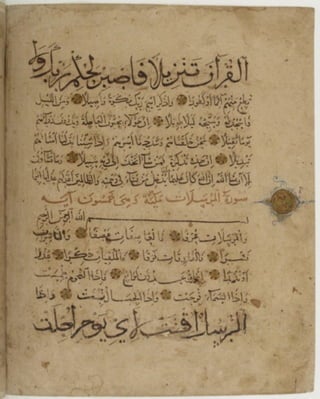 القرآن تنزيلا فاصبر لحكم ربك ولا
تطع منهم آثما أو كفورا واذكر اسم ربك بكرة وأصيلا ومن الليل
فاسجد له وسبحه ليلا طويلا إن هؤلاء يحبون العاجلة ويذرون وراءهم
يوما ثقيلا نحن خلقناهم وشددنا أسرهم وإذا شئنا بدلنا أمثالهم
تبديلا إن هذه تذكرة فمن شاء اتخذ إلى ربه سبيلا وما تشاؤن
إلا أن يشاء الله إن الله كان عليما حكيما يدخل من يشاء في رحمته والظالمين أعد لهم عذابا أليما
سورة المرسلات مكية وهي خمسون آية
بسم الله الرحمن الرحيم
والمرسلات عرفا فالعاصفات عصفا والناشرات
نشرا فالفارقات فرقا فالملقيات ذكرا عذرا
أو نذرا إنما توعدون لواقع فإذا النجوم طمست
وإذا السماء فرجت وإذا الجبال نسفت وإذا
الرسل أقتت لأي يوم أجلت